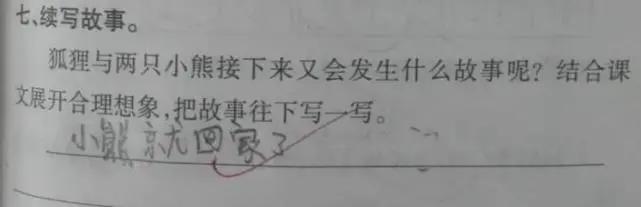 七、续写故事。
狐狸与两只小熊接下来又会发生什么故事呢？结合课
文展开合理想象,把故事往下写一写。
小熊就回家了